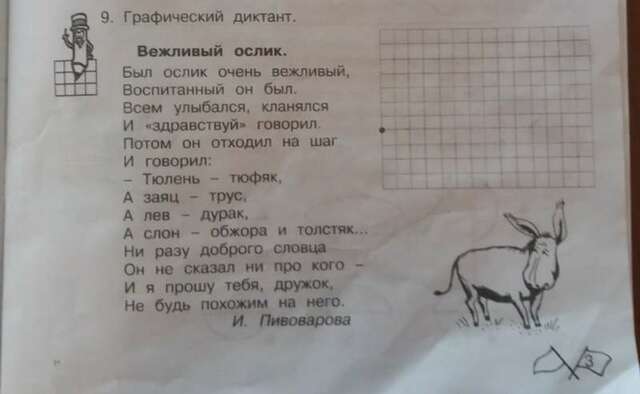 9. Графический диктант.
Вежливый ослик.
Был ослик очень вежливый,
Воспитанный он был.
Всем улыбался, кланялся
И «здравствуй» говорил.
Потом он отходил на шаг
И говорил:
– Тюлень – тюфяк,
А заяц – трус,
А лев – дурак,
А слон – обжора и толстяк...
Ни разу доброго словца
Он не сказал ни про кого –
И я прошу тебя, дружок,
Не будь похожим на него.
И. Пивоварова
3